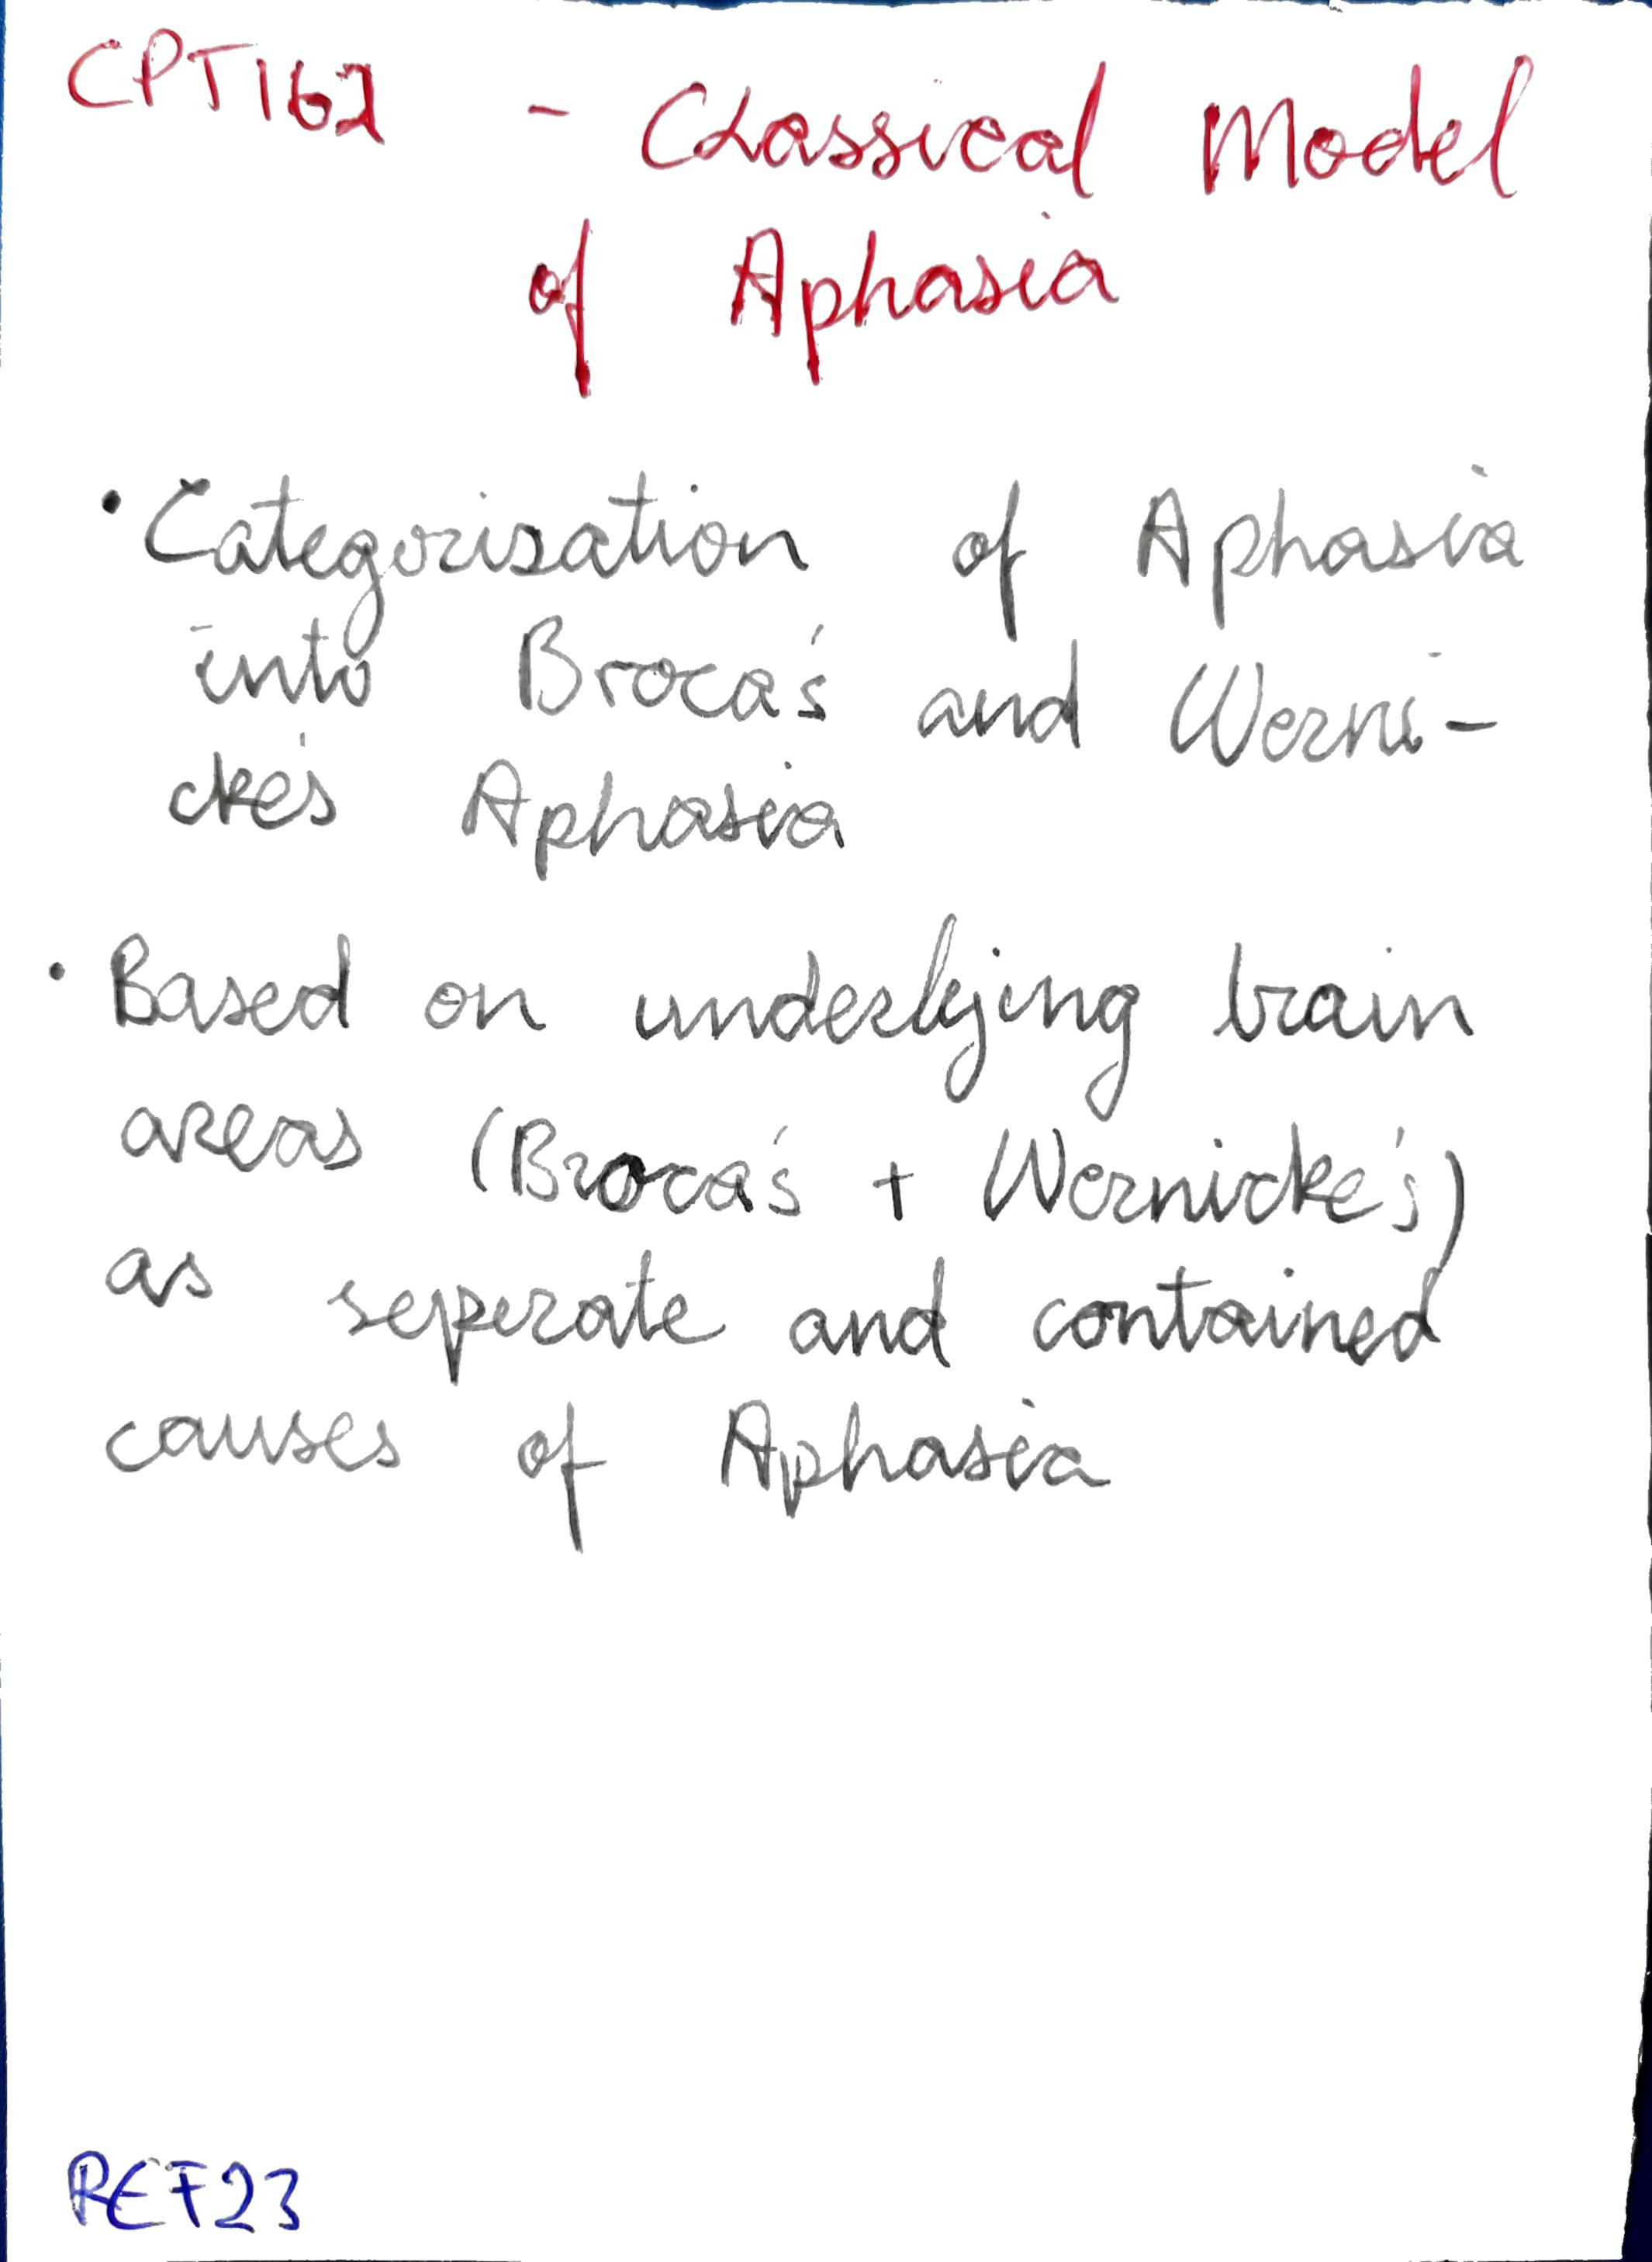 CPT162 - Classical Model
of Aphasia
• Categorisation of Aphasia
into Broca's and Werni-
cke's Aphasia
• Based on underlying brain
areas (Broca's + Wernicke's)
as seperate and contained
causes of Aphasia
REF23